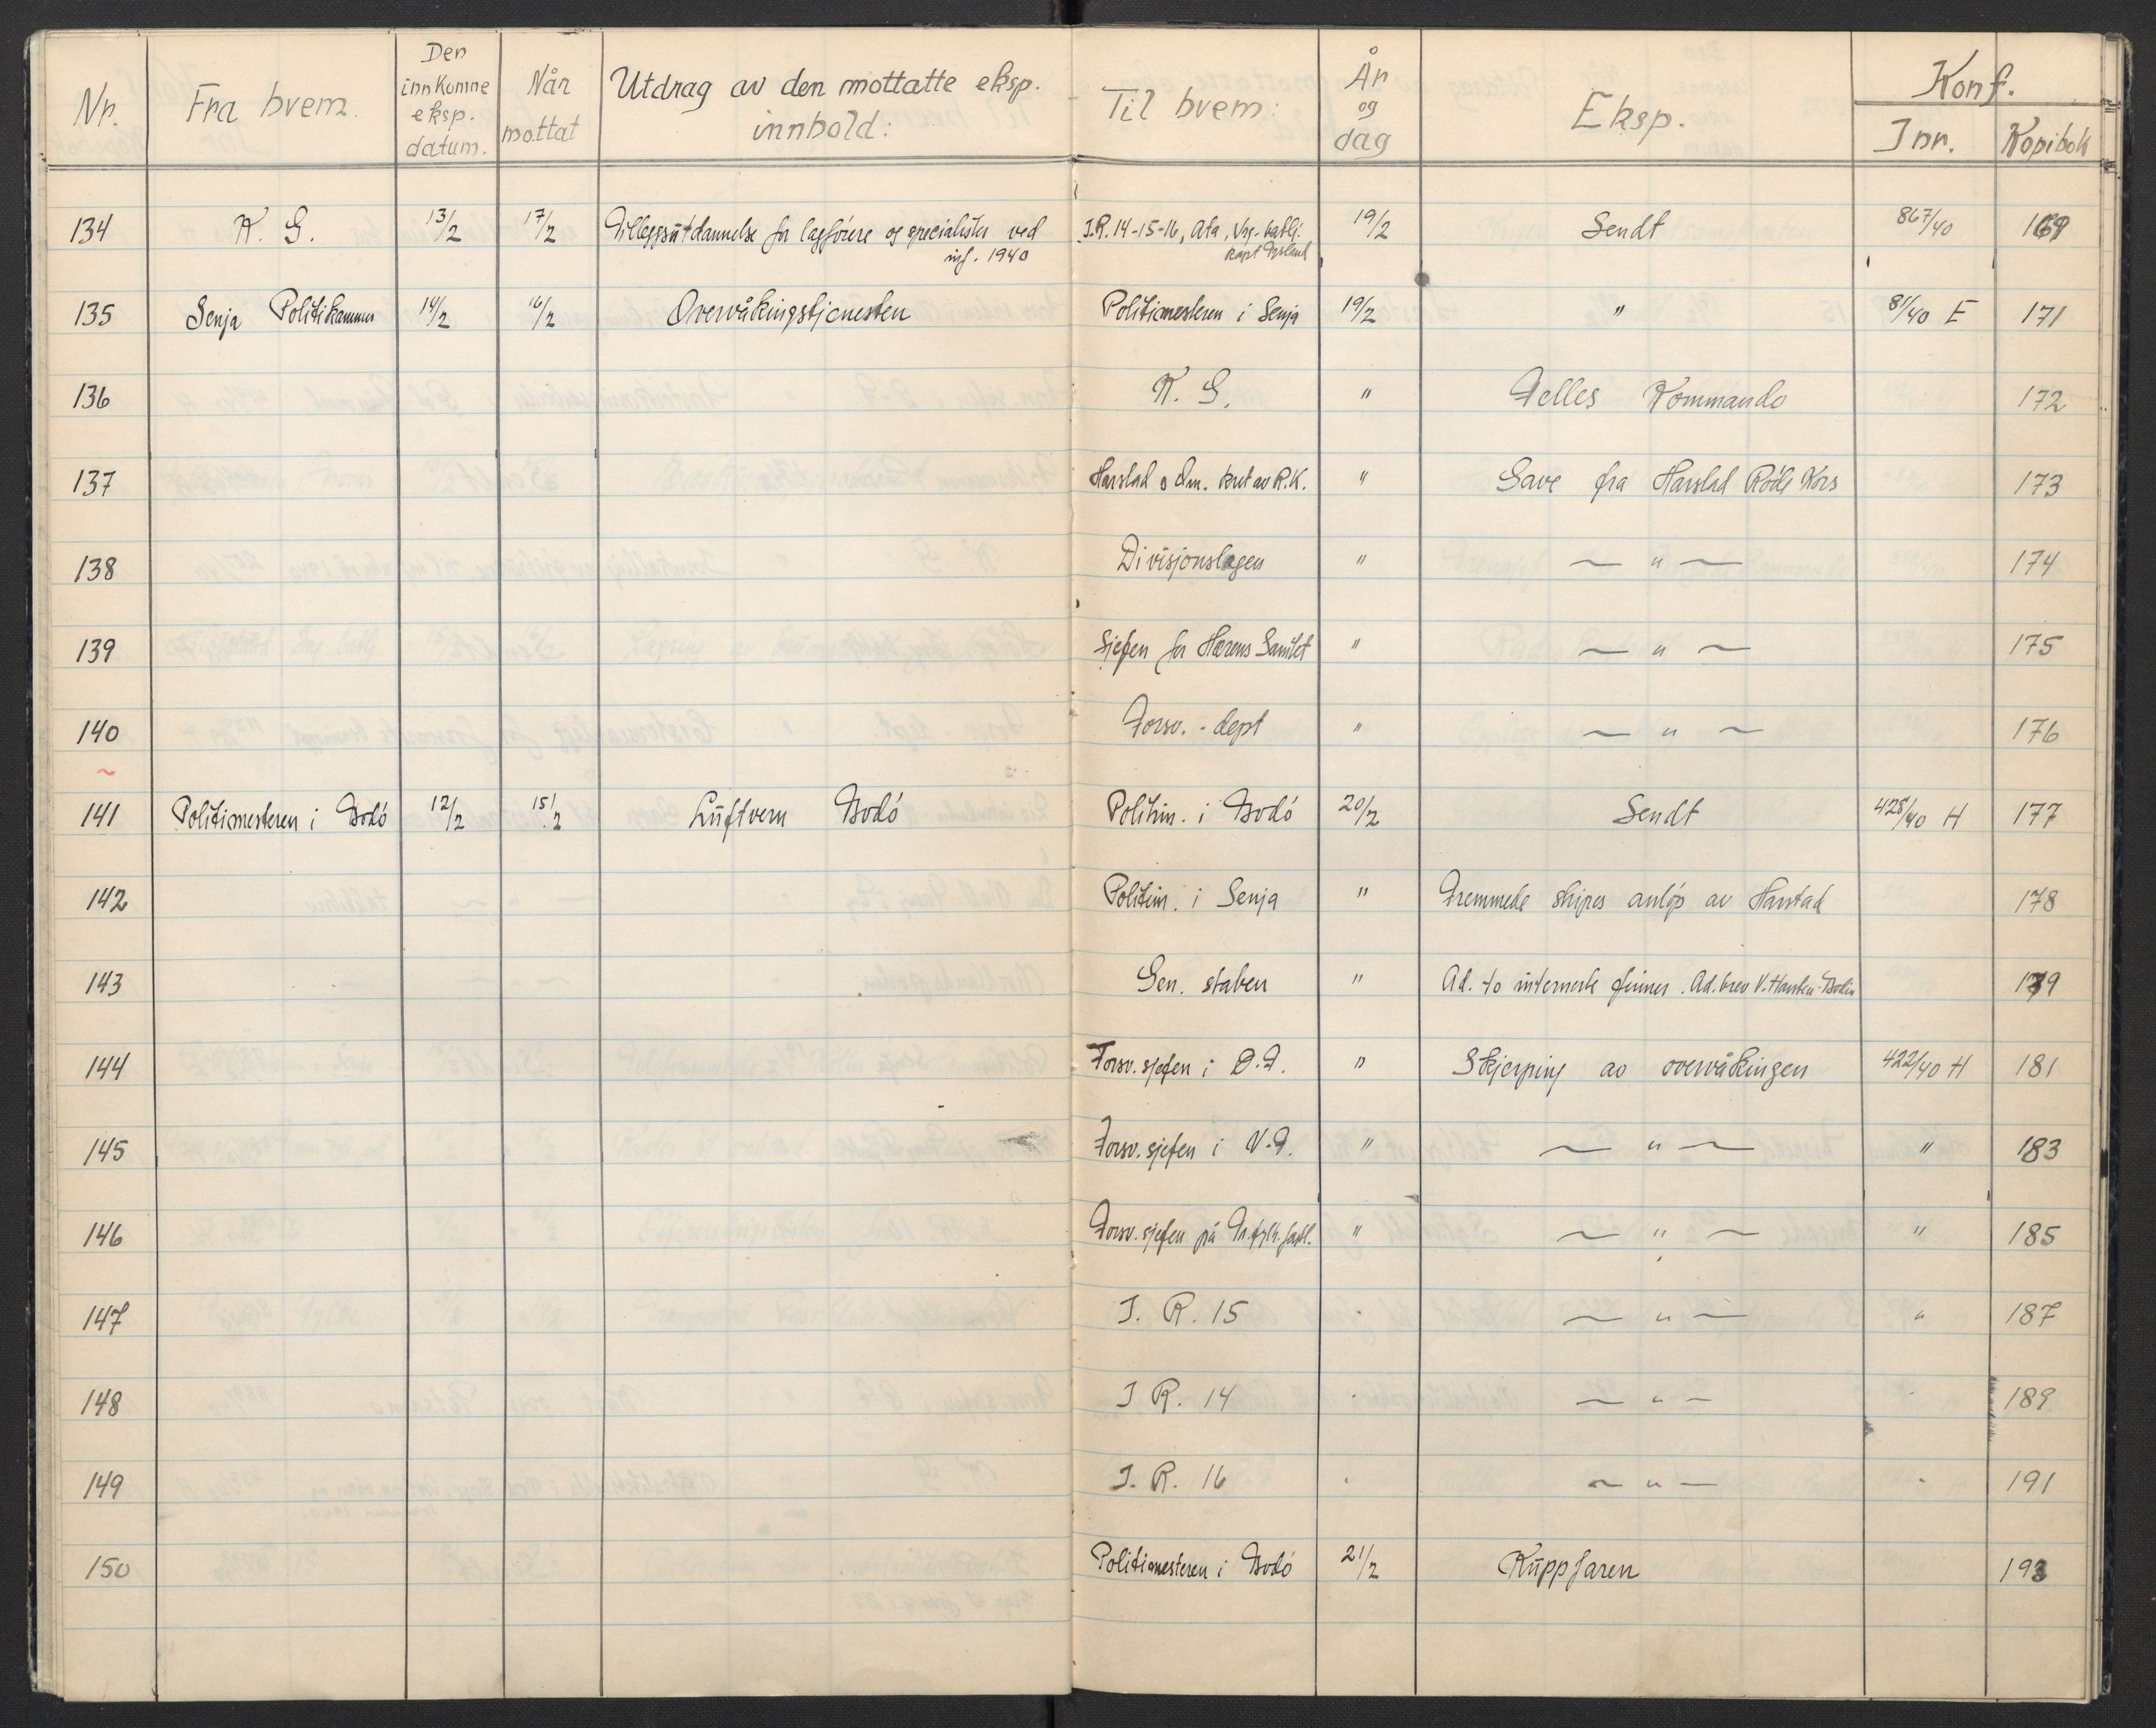 Nr. Fra hvem. Den innkomne eksp. datum. Når mottat Utdrag av den mottatte eksp. innhold: Til hvem: År og dag Eksp. Konf. Jnr. Kopibok
134 K. G. 13/2 17/2 Tilleggsutdannelse for lagførere og specialister ved I.R. 14-15-16, Ata, Vag. 19/2 Sendt 867/40 169
inf. 1940
135 Senja Politikammer 14/2 16/2 Overvåkingstjenesten Politimesteren i Senja 19/2 " 81/40 E 171
136 K. G. " Felles Kommando 172
137 Harstad o Om. av R.K. " Gave fra Harstad Røde Kors 173
138 Divisjonslegen " — " — 174
139 Sjefen for Hærens Sanitet " — " — 175
140 Forsv. - dept " — " — 176
~
141 Politimesteren i Bodó 12/2 15/2 Luftvern Bodó Politim. i Bodó 20/2 Sendt 428/40 H 177
142 Politim. i Senja " Fremmede skipes anløp av Harstad 178
143 Gen. staben " Ad. to internerte finner. Ad. brev V. Hansten - Bodin 179
144 Forsv. sjefen i Ø.F. " Skjerping av overvåkingen 422/40 H 181
145 Forsv. sjefen i V.F. " — " — " 183
146 Forsv. sjefen på " — " — " 185
147 I. R. 15 " — " — " 187
148 I R. 14 " — " — " 189
149 I. R. 16 " — " — " 191
150 Politimesteren i Bodó 21/2 Kuppfaren 193